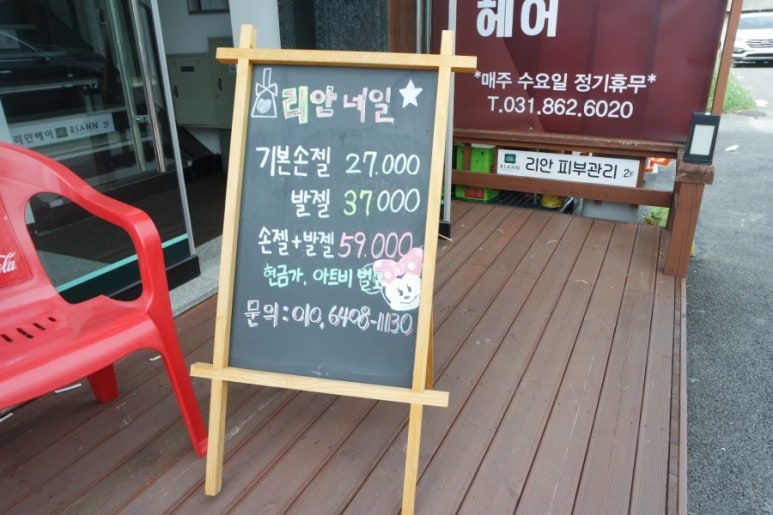 헤어
*매주 수요일 정기휴무*
T.031.862.6020
리안 피부관리 2F
리안헤어 RIAHN 2F
리안 네일
기본손젤 27.000
발젤 37000
손젤+발젤 59.000
현금가, 아트비 별도
문의: 010, 6408-1130